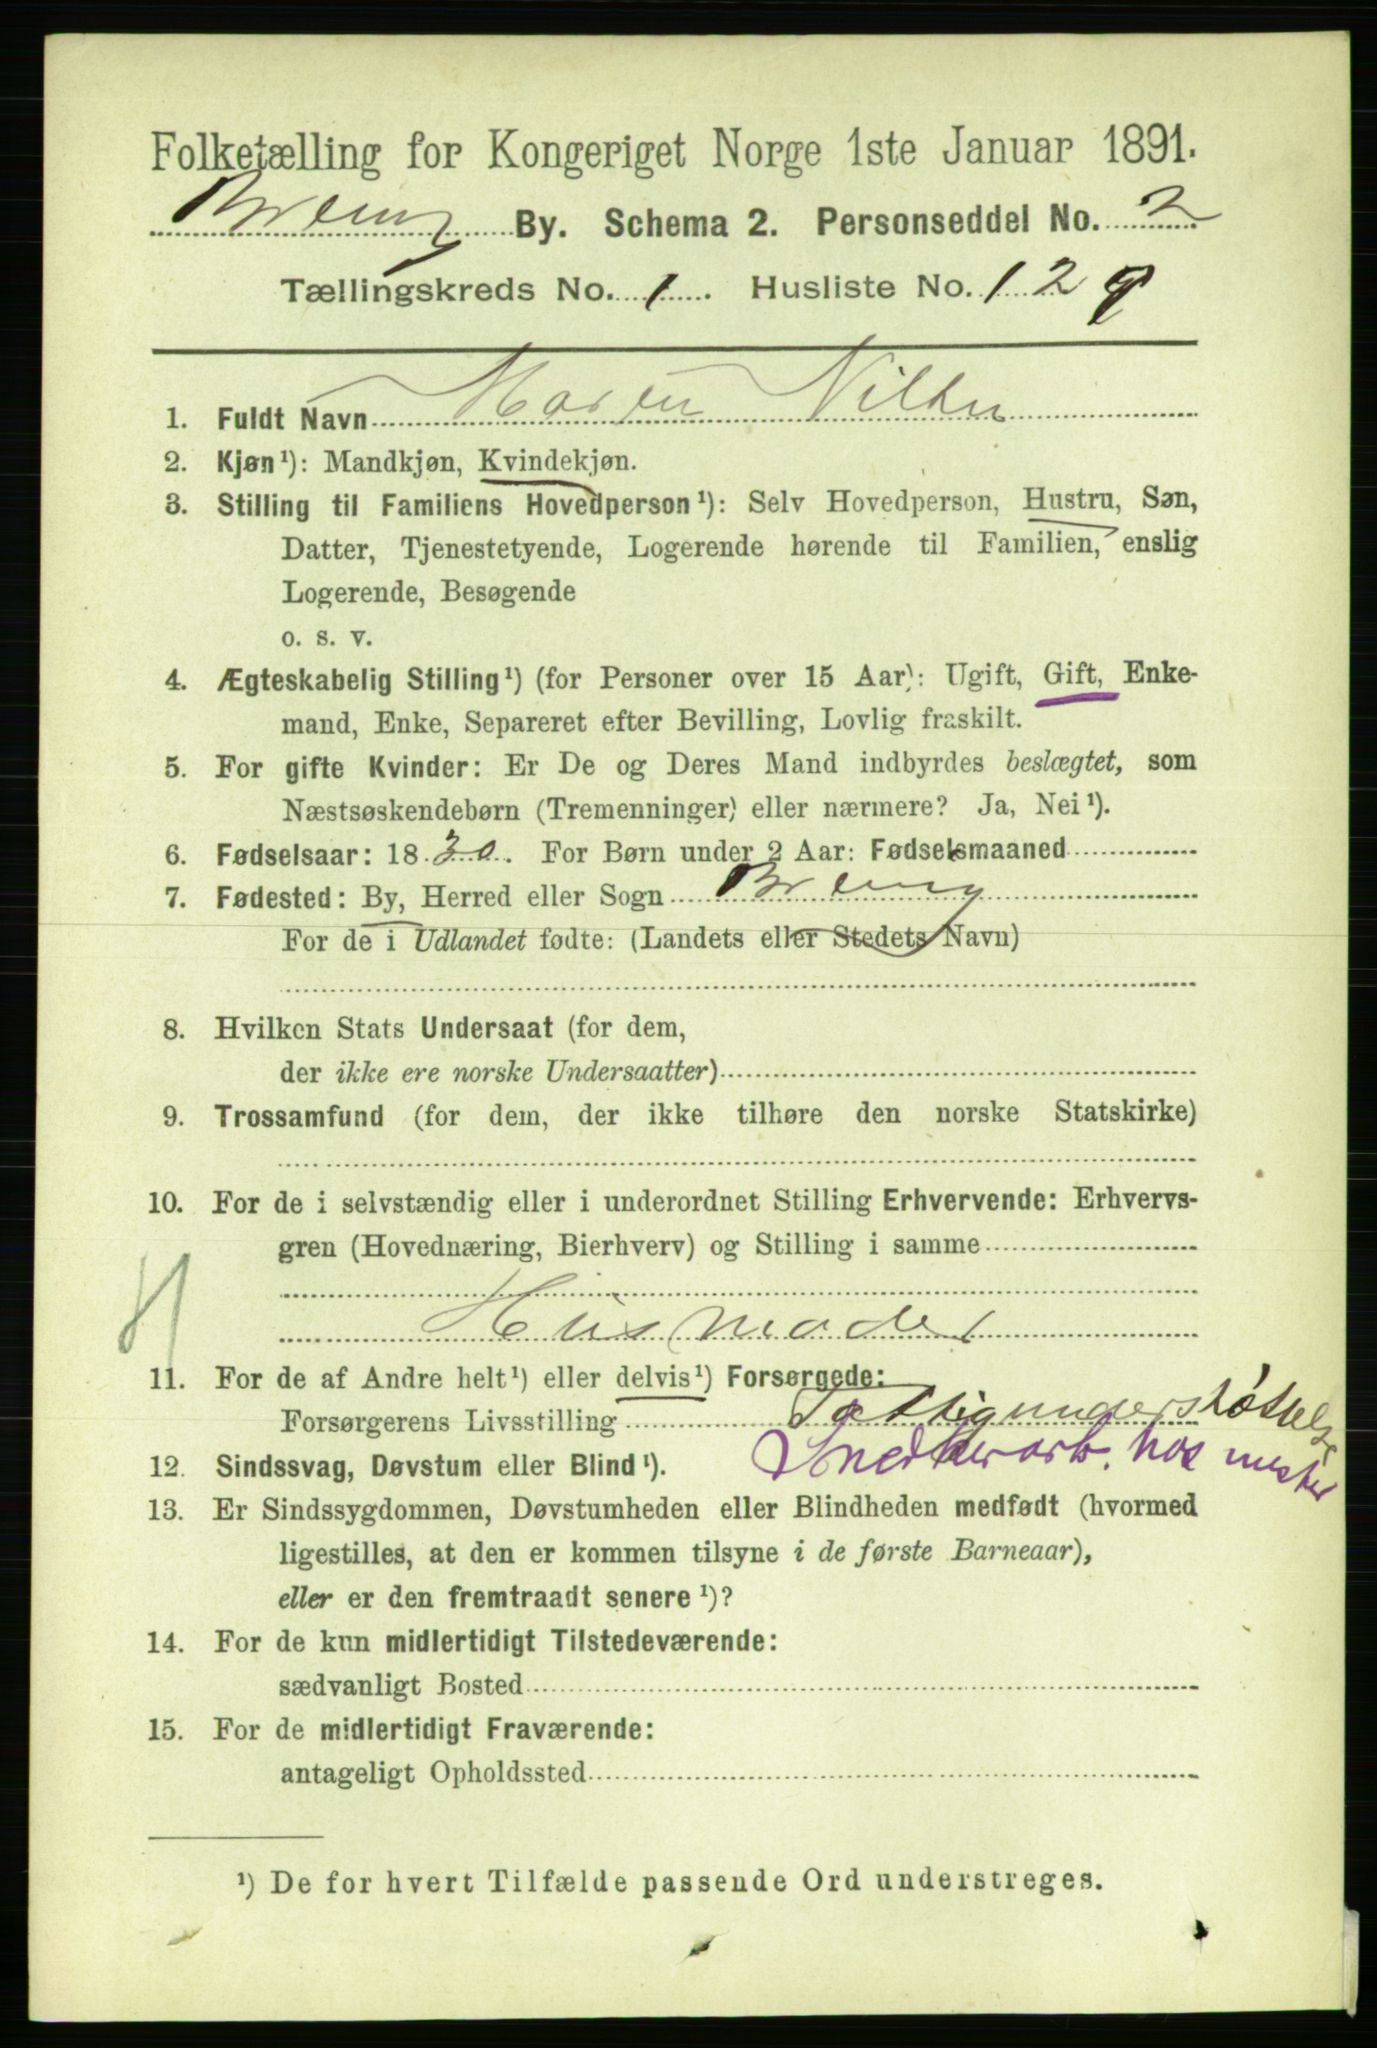 Folketælling for Kongeriget Norge 1ste Januar 1891.
Brevig By. Schema 2. Personseddel No. 2
Tællingskreds No. 1. Husliste No. 129
1. Fuldt Navn Maren Nilsen
2. Kjøn¹): Mandkjøn, Kvindekjøn.
3. Stilling til Familiens Hovedperson¹): Selv Hovedperson, Hustru, Søn,
Datter, Tjenestetyende, Logerende hørende til Familien, enslig
Logerende, Besøgende
o. s. v.
4. Ægteskabelig Stilling¹) (for Personer over 15 Aar): Ugift, Gift, Enke-
mand, Enke, Separeret efter Bevilling, Lovlig fraskilt.
5. For gifte Kvinder: Er De og Deres Mand indbyrdes beslægtet, som
Næstsøskendebørn (Tremenninger) eller nærmere? Ja, Nei¹).
6. Fødselsaar: 1830. For Børn under 2 Aar: Fødselsmaaned
7. Fødested: By, Herred eller Sogn Brevig
For de i Udlandet fødte: (Landets eller Stedets Navn)
8. Hvilken Stats Undersaat (for dem,
der ikke ere norske Undersaatter)
9. Trossamfund (for dem, der ikke tilhøre den norske Statskirke)
10. For de i selvstændig eller i underordnet Stilling Erhvervende: Erhvervs-
gren (Hovednæring, Bierhverv) og Stilling i samme
H
Husmoder
11. For de af Andre helt¹) eller delvis¹) Forsørgede:
Forsørgerens Livsstilling Fattigunderstøttelse
Snedkerarb. hos mester
12. Sindssvag, Døvstum eller Blind¹).
13. Er Sindssygdommen, Døvstumheden eller Blindheden medfødt (hvormed
ligestilles, at den er kommen tilsyne i de første Barneaar),
eller er den fremtraadt senere¹)?
14. For de kun midlertidigt Tilstedeværende:
sædvanligt Bosted
15. For de midlertidigt Fraværende:
antageligt Opholdssted
¹) De for hvert Tilfælde passende Ord understreges.